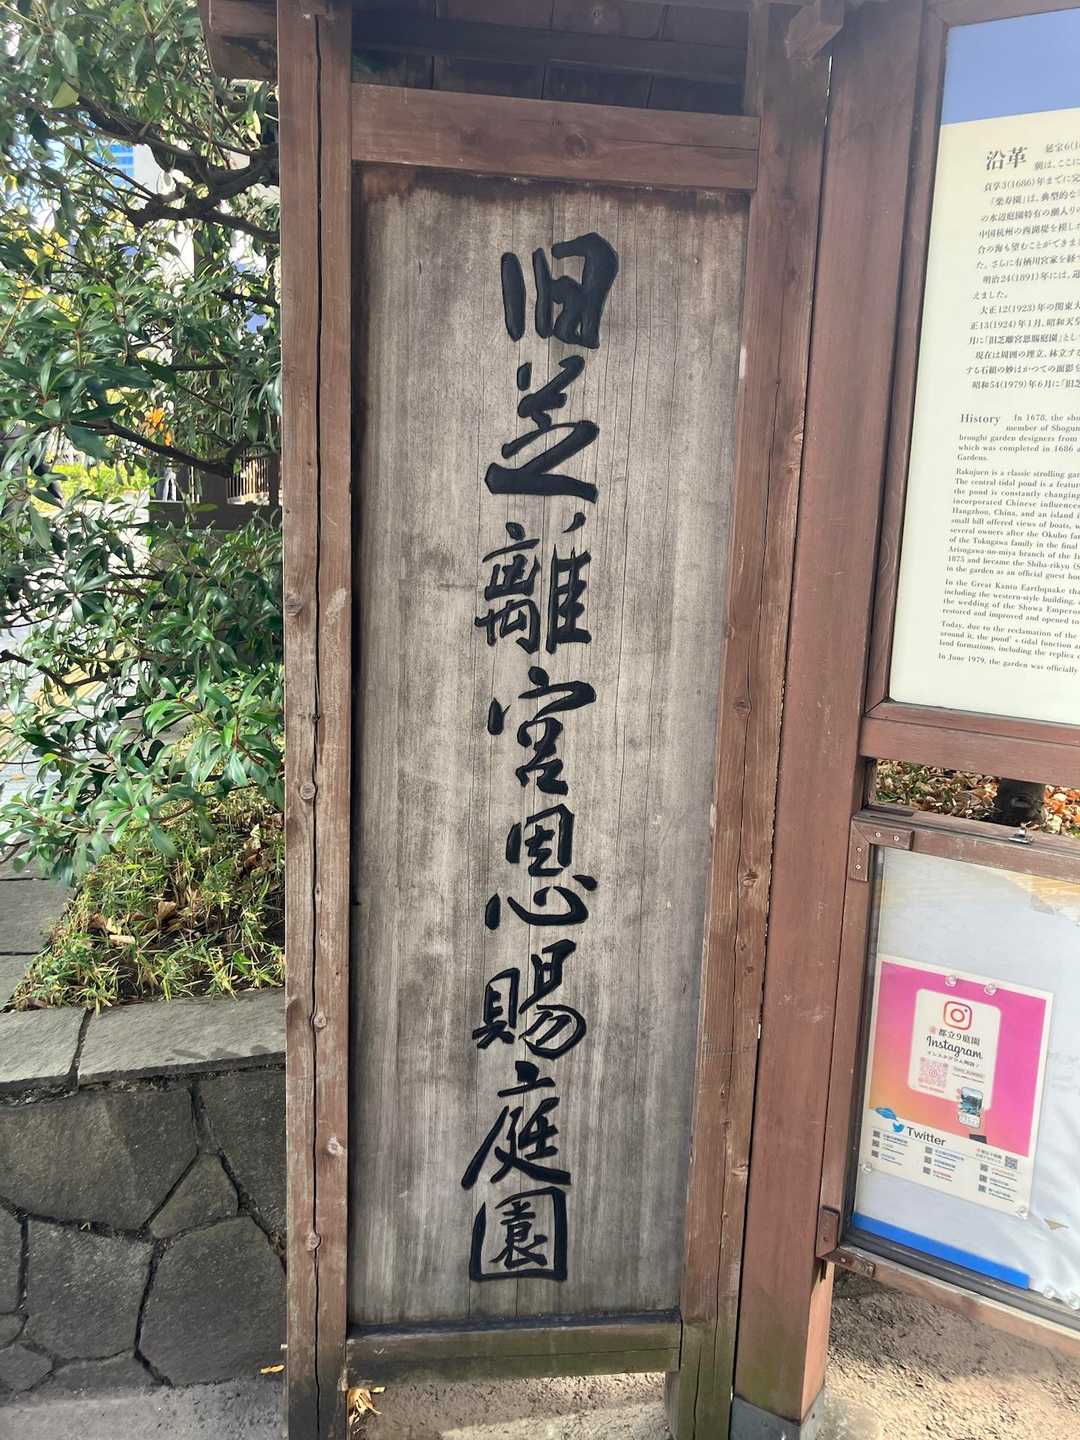 旧芝離宮恩賜庭園
沿革
延宝6(16
朝は、ここに
貞享3(1686)年までに完
「楽寿園」は、典型的な
の水辺庭園特有の潮入りの
中国杭州の西湖堤を模した
合の海も望むことができま
た。さらに有栖川宮家を経て
明治24(1891)年には、迎
えました。
大正12(1923)年の関東大
正13(1924)年1月、昭和天皇
月に「旧芝離宮恩賜庭園」とし
現在は周囲の埋立、林立する
する石組の妙はかつての面影を
昭和54(1979)年6月に「旧芝
History In 1678, the sho
member of Shogun
brought garden designers from
which was completed in 1686 a
Gardens.
Rakujuen is a classic strolling gar
The central tidal pond is a featur
the pond is constantly changing
incorporated Chinese influences
Hangzhou, China, and an island i
small hill offered views of boats, w
several owners after the Okubo fam
of the Tokugawa family in the final
Arisugawa-no-miya branch of the I
1875 and became the Shiba-rikyu (S
in the garden as an official guest hou
In the Great Kanto Earthquake tha
including the western-style building, a
the wedding of the Showa Emperor
restored and improved and opened to
Today, due to the reclamation of the
around it, the pond's tidal function a
land formations, including the replica o
In June 1979, the garden was officially
都立9庭園
Instagram
インスタグラム開設!
Twitter